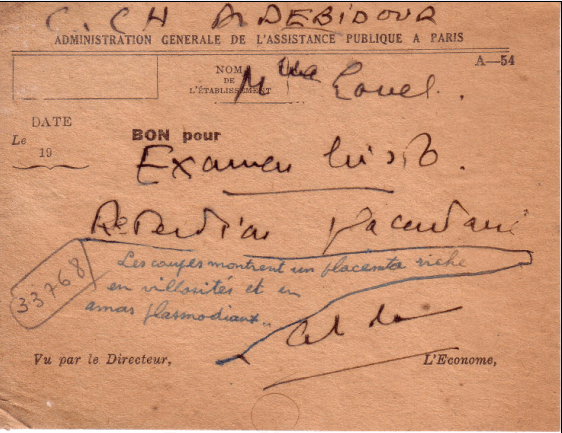 C. CH A DEBIDOUR
ADMINISTRATION GENERALE DE L'ASSISTANCE PUBLIQUE A PARIS
A—54
NOM
DE
L'ÉTABLISSEMENT
Mlle
DATE
Le 19
BON pour
Examen histo.
Retention placentaire
33768
Les coupes montrent un placenta riche
en villosités et en
amas plasmodiaux..
Vu par le Directeur,
L'Econome,